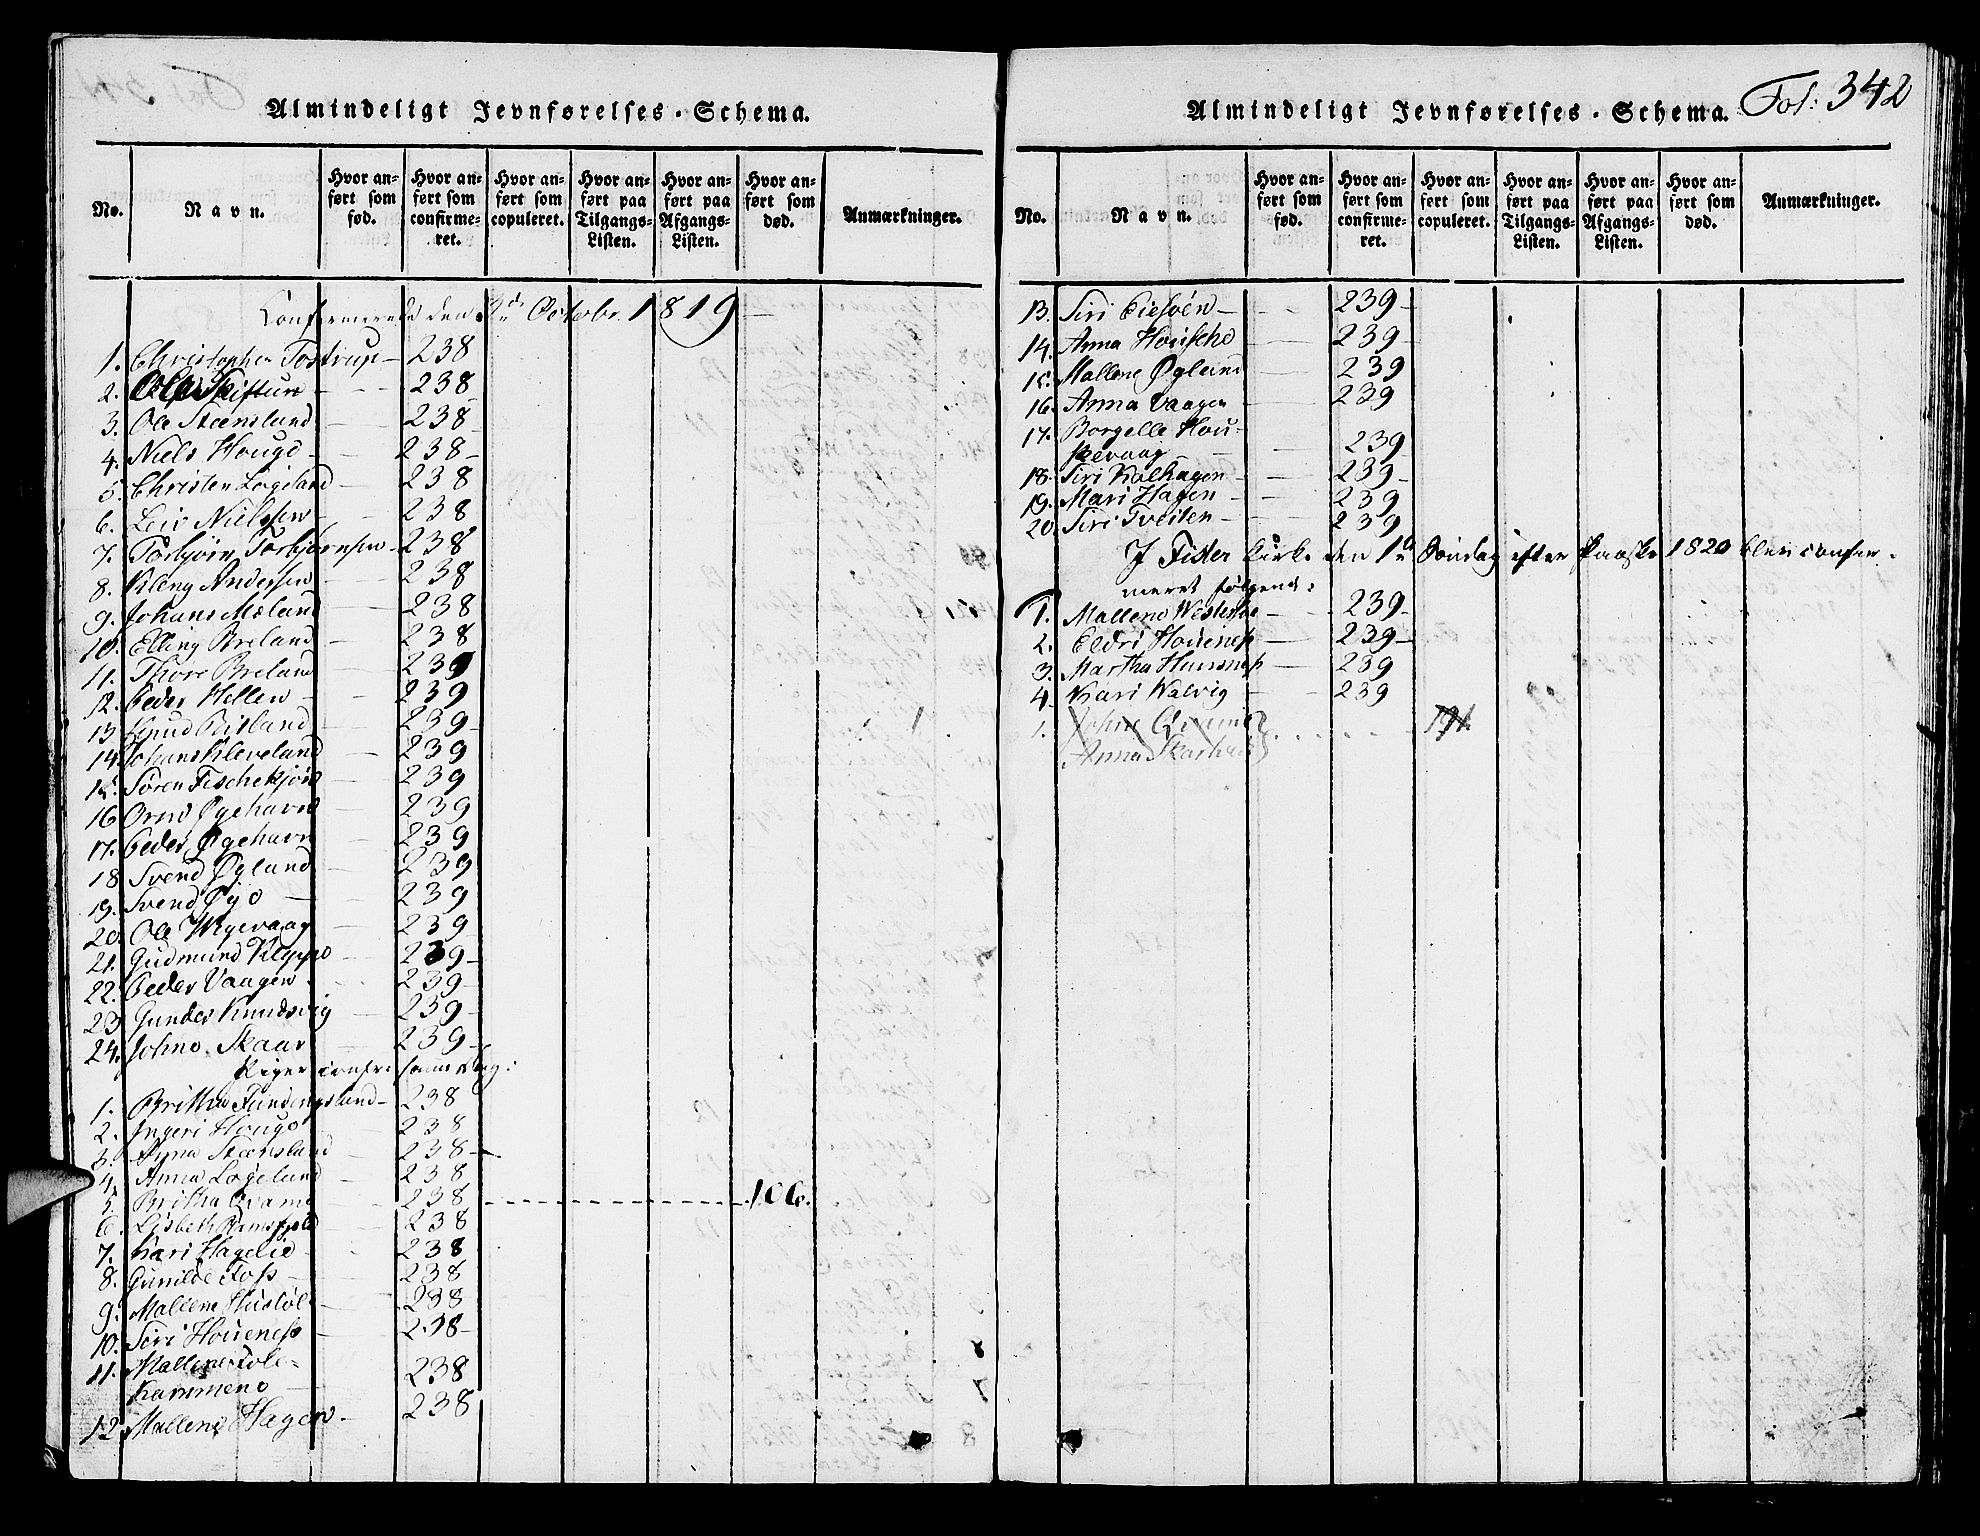 Almindeligt Jevnførelses-Schema.
No.
Navn.
Hvor anført som fød.
Hvor anført som confirmeret.
Hvor anført som copuleret.
Hvor anført paa Tilgangs-Listen.
Hvor anført paa Afgangs-Listen.
Hvor anført som død.
Anmærkninger.
Confirmerede den Octobr. 1819
1. Christopher Tostrup - 238
2. Ole 238
3. Ole Steensland 238
4. Niels Houge 238
5. Christen Løgeland 238
6. Leiv Nielsen 238
7. Torbjørn Torbjørnsen 238
8. Kleng Andersen 238
9. Johans Mæland 238
10. Elling Breland 238
11. Thore Breland 239
12. Peder Hellen 239
13 Knud Ritland 239
14 Johans Kleveland 239
15. Søren Fischekjøn 239
16 Orm Øgehavn 239
17. Peder Øgehavn 239
18 Svend Øgland 239
19. Svend Øyo 239
20 Ole Wigevaag 239
21. Gudmund Kleppe 239
22. Peder Vaagen 239
23 Gunder Knudsvig 239
24. John Skaar 239
Piger confir: samme Dag:
1. Britha Tundengsland 238
2. Ingeri Houge 238
3. Anna Steensland 238
4. Anna Løgeland 238
5. Britha Qvame 238 106.
6. Lisbeth Ramsfield 238
7. Kari Hagelie 238
8. Gunilde Foss 238
9. Mallene Hustøl 238
10. Siri Houeness 238
11. Mallene Tole-
kammene 238
12. Mallene Hagen 238
Almindeligt Jevnførelses-Schema.
Fol: 342
No.
Navn.
Hvor anført som fød.
Hvor anført som confirmeret.
Hvor anført som copuleret.
Hvor anført paa Tilgangs-Listen.
Hvor anført paa Afgangs-Listen.
Hvor anført som død.
Anmærkninger.
13. Siri 239
14. Anna 239
15. Mallene Øgland 239
16. Anna Vaagen 239
17. Borgelle Hou-
skevaag 239
18. Siri Kalhagen 239
19. Mari Hagen 239
20. Siri Tveiten 239
I Fister Kirke den 1te Søndag efter Paaske 1820 blev confir-
meret følgende:
1. Mallene Westerbøe 239
2. Eldri Houeness 239
3. Martha Huusness 239
4. Kari Walvig 239
1. John Qvame 191.
Anna Skarhuus